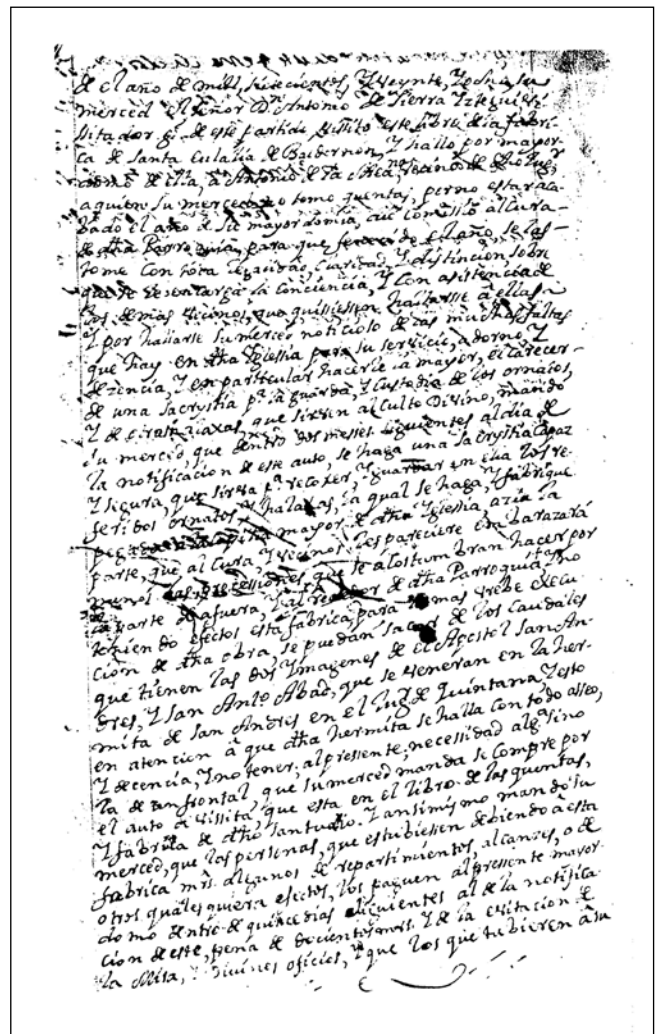 de el año de mill, setecientos, y Veynte, y ocho, su
merced el Señor Dn. Antonio de Sierra Yztegui Vi-
sitador gl. de este partido Vissitó este libro de la fabri-
ca de Santa Eulalia de Baldernon, y hallo por mayor-
domo de ella, a Antonio de la vecino de dho lugr
a quien su merced no tomo quentas, por no estar aca-
bado el año de su mayordomia, cometió al Cura
de dha Parroquia, para que de el año, se las
tome con toda claridad, y distincion, sobre
que se le encarga la Conciencia, y con asistencia de
los demas vecinos, que quisiessen hallarsse a ellas
y por hallarse su merced noticioso de las muchas faltas
que hay en dha Yglessia para su servicio, adorno y
dezencia, y en particular hacerle la mayor, el Carecer
de una Sacrystia pa. la guarda, y Custodia de los ornatos,
y de alaxas, que sirven al Culto Divino, mandó
su merced, que dentro dos messes siguientes al dia de
la notificacion de este auto, se haga una Sacrystia Capaz
y segura, que sirva pa. recoxer, y guardar en ella los re-
feridos ornatos, y halaxas, la qual se haga, y fabrique
mayor de dha Yglessia, azia la
parte, que al Cura, y vecinos les pareciere embarazará
menos las processiones que se acostumbran hacer por
la parte de afuera, y al rededor de dha Parroquia, y no
teniendo efectos esta fabrica, para la mas breve execu-
cion de dha obra, se puedan sacar de los Caudales
que tienen las dos Ymagenes de el Apostol San An-
dres, y San Anto. Abad, que se veneran en la her-
mita de San Andres en el lug. de Quintana, y esto
en atencion à que dha hermita se halla con todo asseo,
y decencia, y no tener, al pressente, necessidad alga. sino
la de un frontal, que su merced manda se compre por
el auto de Vissita, que esta en el libro de las quentas,
y fabrica de dho santuario. Y ansimismo mandó su
merced, que las personas, que estubiessen debiendo à esta
fabrica mrs. algunos de repartimientos, alcanzes, o de
otros qualesquiera efectos, los paguen al pressente mayor-
domo dentro de quince dias siguientes al de la notifica-
cion de este, pena de docientos mrs. y de la evitacion de
la Missa, y Divinos oficios, y que los que tubieren à su